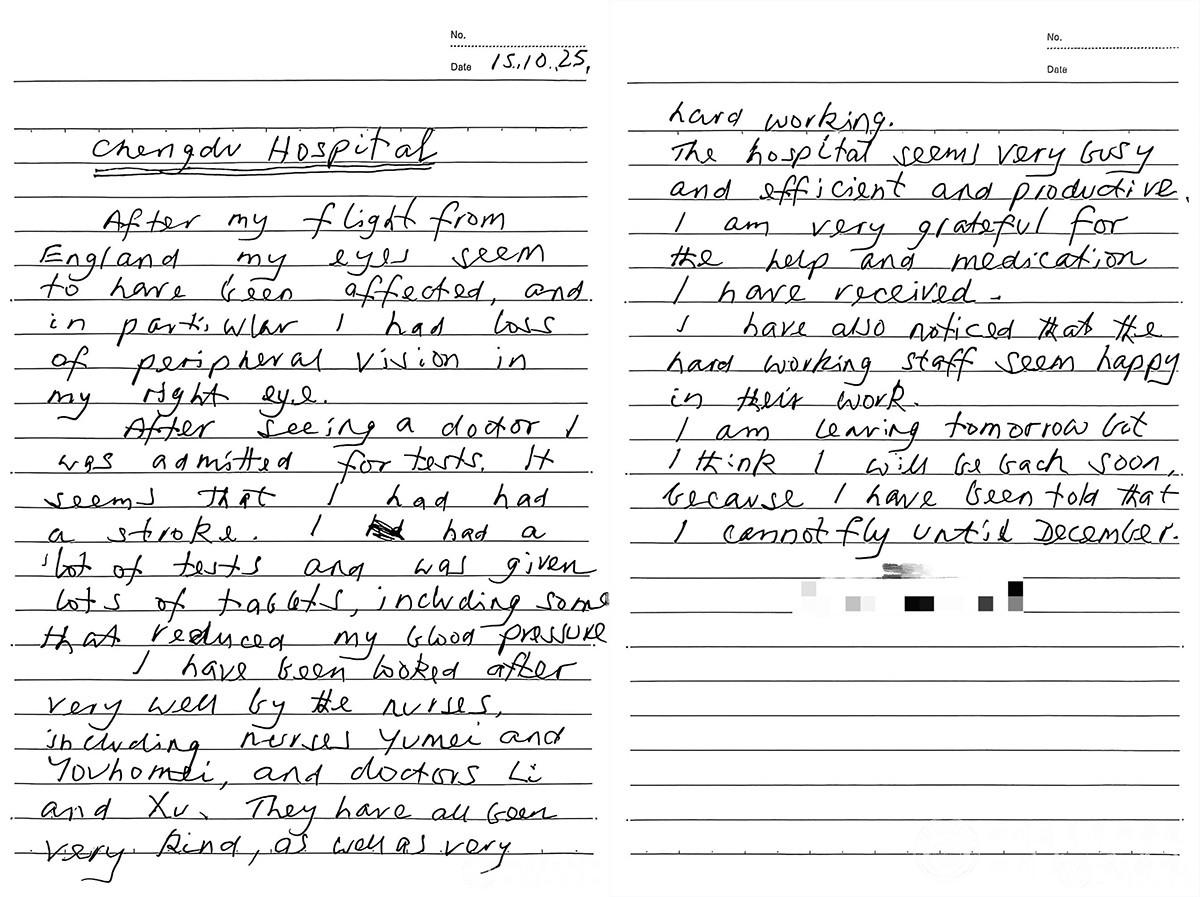 No.
Date 15.10.25,
Chengdu Hospital
After my flight from
England my eyes seem
to have been affected, and
in particular I had loss
of peripheral vision in
my right eye.
After seeing a doctor I
was admitted for tests. It
seems that I had had
a stroke. I had a
lot of tests and was given
lots of tablets, including some
that reduced my blood pressure
I have been looked after
very well by the nurses,
including nurses Yumei and
Youhomei, and doctors Li
and Xu. They have all been
very kind, as well as very
No.
Date
hard working.
The hospital seems very busy
and efficient and productive.
I am very grateful for
the help and medication
I have received.
I have also noticed that the
hard working staff seem happy
in their work.
I am leaving tomorrow but
I think I will be back soon,
because I have been told that
I cannot fly until December.